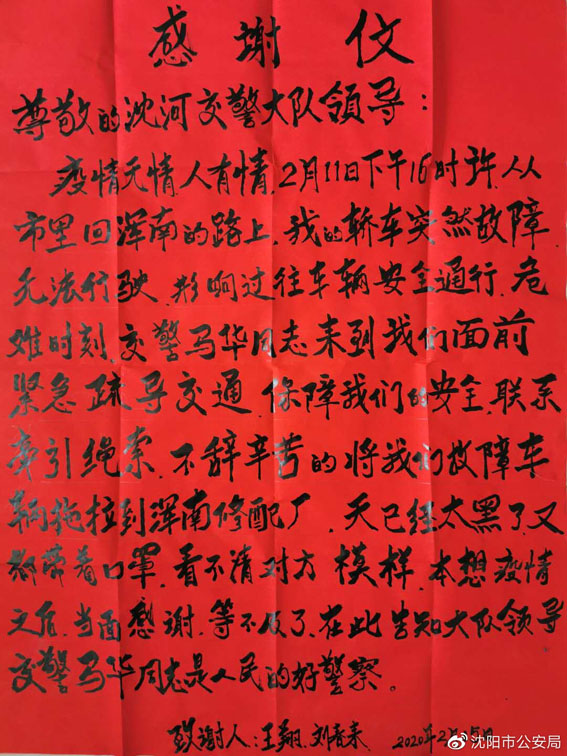 感谢仪
尊敬的沈河交警大队领导：
疫情无情人有情，2月11日下午16时许，从
市里回浑南的路上，我的轿车突然故障，
无法行驶，影响过往车辆安全通行，危
难时刻，交警马华同志来到我们面前
紧急疏导交通，保障我们的安全，联系
牵引绳索，不辞辛苦的将我们故障车
辆拖拉到浑南修配厂，天已经太黑了，又
都带着口罩，看不清对方模样，本想疫情
之后，当面感谢，等不及了，在此告知大队领导
交警马华同志是人民的好警察。
致谢人：王翔、刘春来 2020年2月
@沈阳市公安局